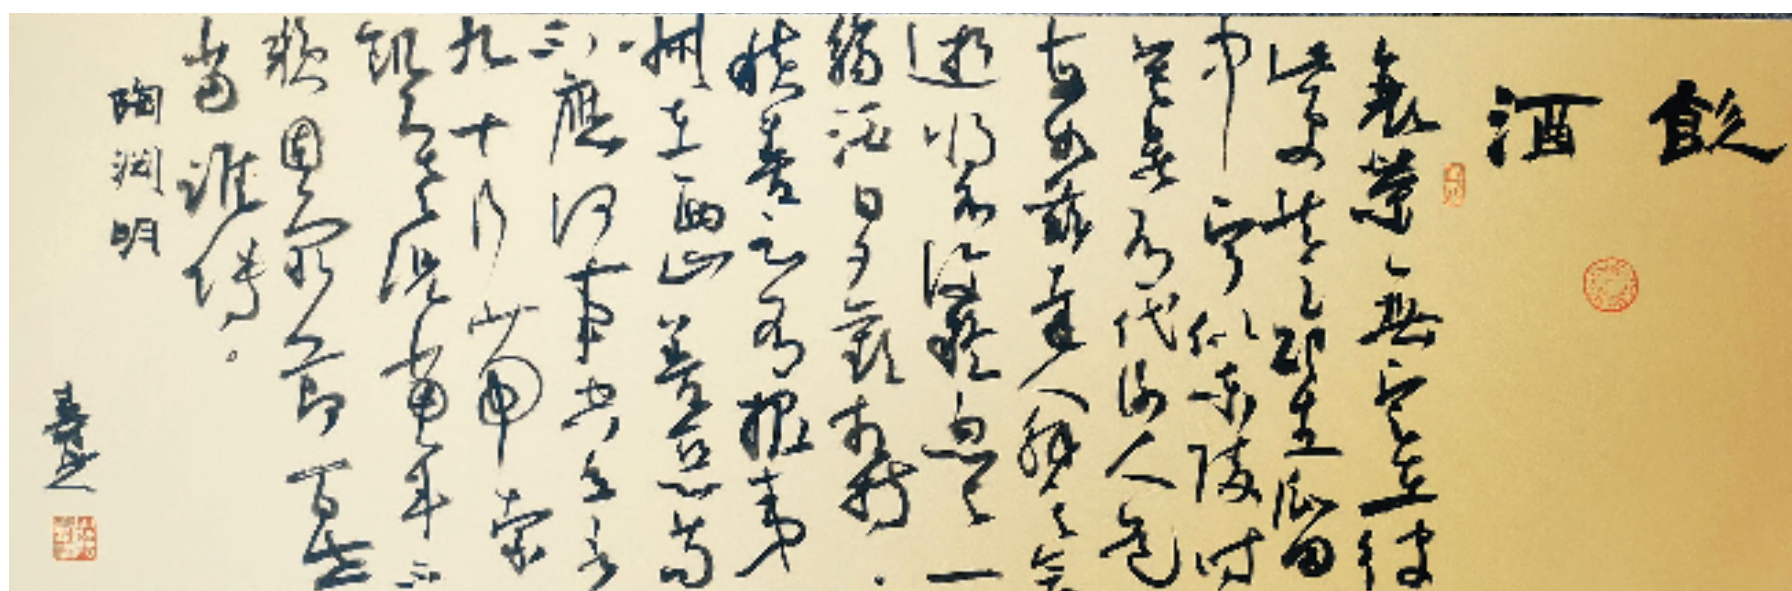 飲酒
衰榮無定在彼
此更共之邵生瓜田
中寧似東陵時
寒暑有代謝人道
每如茲達人解其會
逝将不復疑忽與一
觴酒日夕歡相持
積善云有報夷
叔在西山善惡苟
不應何事空立言
九十行帶索
飢寒況當年不
賴固窮節百世
當誰傳。
陶渊明